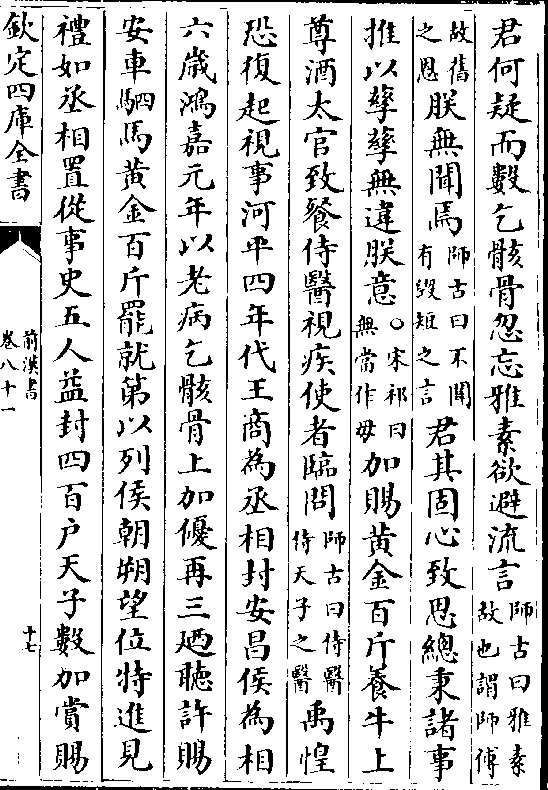 君何疑而數乞骸骨忽忘雅素欲避流言師古曰雅素故也謂師傅
故舊之恩朕無聞焉師古曰不聞有毁短之言君其固心致思總秉諸事
推以孳孳無違朕意○宋祁曰無當作毋加賜黄金百斤養牛上
尊酒太官致餐侍醫視疾使者臨問師古曰侍醫侍天子之醫禹惶
恐復起視事河平四年代王商為丞相封安昌侯為相
六歲鴻嘉元年以老病乞骸骨上加優再三廼聽許賜
安車駟馬黄金百斤罷就第以列侯朝朔望位特進見
禮如丞相置從事史五人益封四百户天子數加賞賜
欽定四庫全書
前漢書
卷八十一
十七